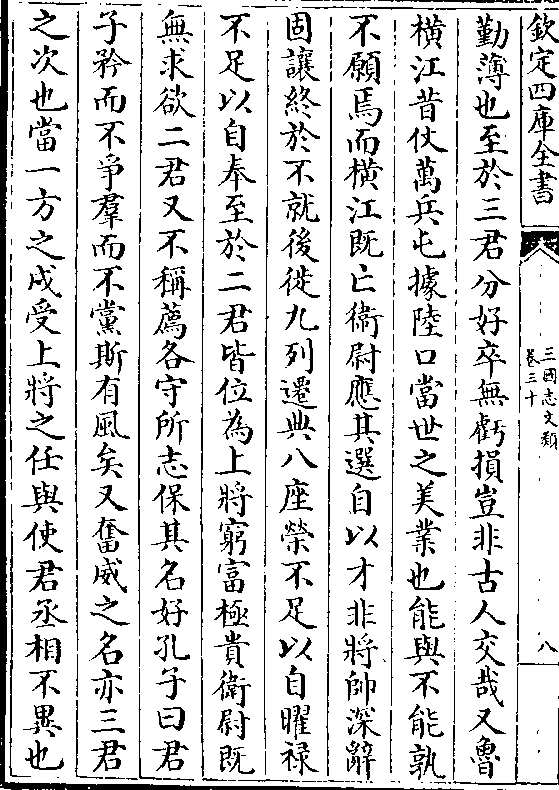 欽定四庫全書
三國志文類
卷三十
八
勤薄也至於三君分好卒無虧損豈非古人交哉又魯
橫江昔仗萬兵屯據陸口當世之美業也能與不能孰
不願焉而橫江既亡衛尉應其選自以才非將帥深辭
固讓終於不就後徙九列遷典八座榮不足以自曜祿
不足以自奉至於二君皆位為上將窮富極貴衛尉既
無求欲二君又不稱薦各守所志保其名好孔子曰君
子矜而不爭羣而不黨斯有風矣又奮威之名亦三君
之次也當一方之戍受上將之任與使君丞相不異也